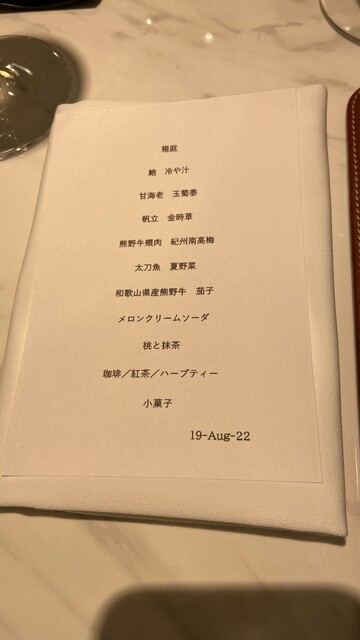 箱庭
鮑　冷や汁
甘海老　玉蜀黍
帆立　金時草
熊野牛頬肉　紀州南高梅
太刀魚　夏野菜
和歌山県産熊野牛　茄子
メロンクリームソーダ
桃と抹茶
珈琲／紅茶／ハーブティー
小菓子
19-Aug-22